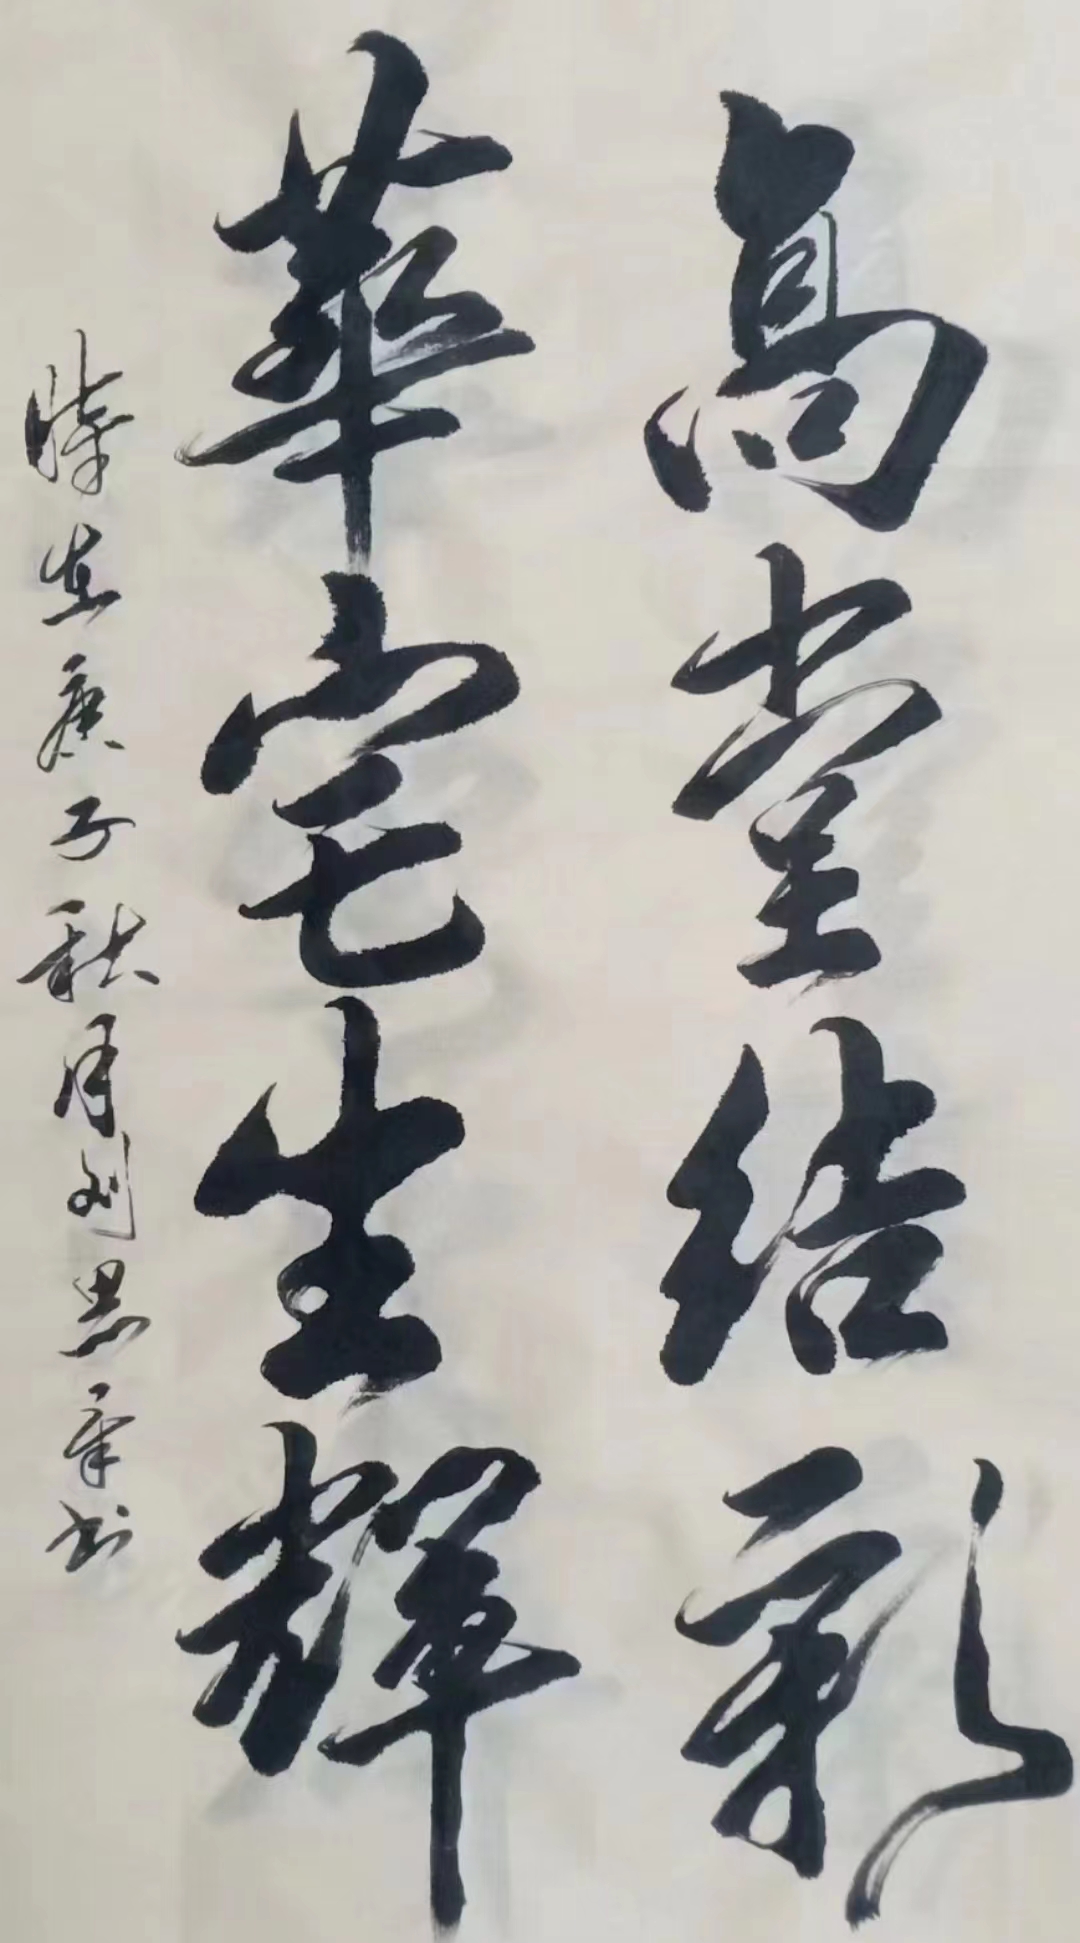 高堂结彩
華宅生輝
时在庚子秋月刘思章书